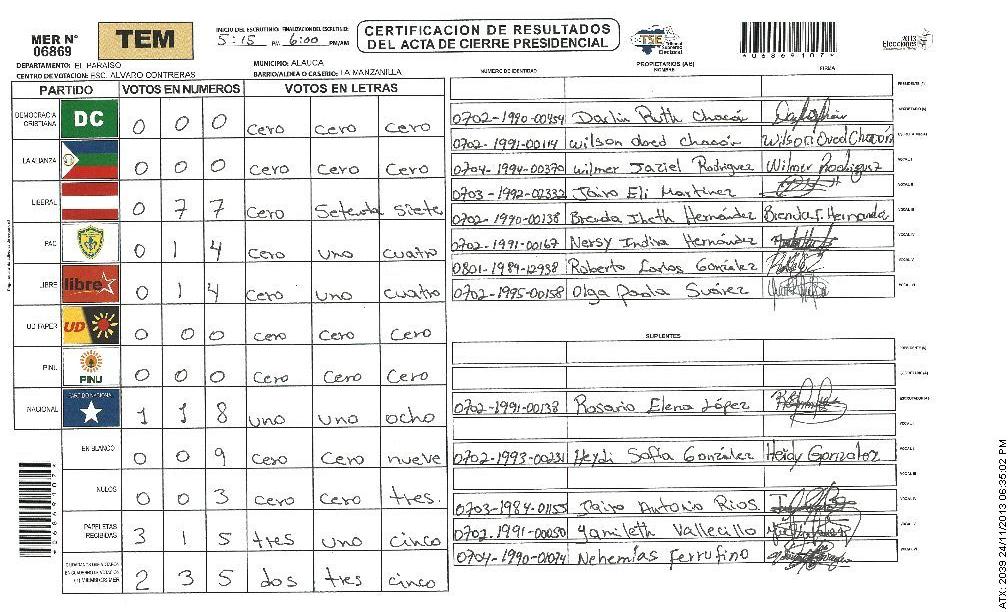 MER N° 06869
TEM
INICIO DEL ESCRUTINIO: FINALIZACION DEL ESCRUTINIO:
5:15 PM 6:00 PM/AM
CERTIFICACION DE RESULTADOS
DEL ACTA DE CIERRE PRESIDENCIAL
TSE
Tribunal Supremo Electoral
2013 Elecciones
*06869107*
DEPARTAMENTO: EL PARAISO
MUNICIPIO: ALAUCA
CENTRO DE VOTACION: ESC. ALVARO CONTRERAS
BARRIO/ALDEA O CASERIO: LA MANZANILLA
PARTIDO VOTOS EN NUMEROS VOTOS EN LETRAS
DEMOCRACIA CRISTIANA DC 0 0 0 cero cero cero
LA ALIANZA 0 0 0 cero cero cero
LIBERAL 0 7 7 cero Setenta siete
PAC 0 1 4 cero uno cuatro
LIBRE libre 0 1 4 cero uno cuatro
UD FAPER UD 0 0 0 cero cero cero
PINU PINU 0 0 0 cero cero cero
NACIONAL PARTIDO NACIONAL 1 1 8 uno uno ocho
EN BLANCO 0 0 9 cero cero nueve
NULOS 0 0 3 cero cero tres.
PAPELETAS RECIBIDAS 3 1 5 tres uno cinco
2 3 5 dos tres cinco
*06869107*
PROPIETARIOS (AS)
NUMERO DE IDENTIDAD NOMBRE FIRMA
0702-1990-00454 Darlin Ruth Chacón
0702-1991-00114 wilson oved chacón Wilson Oved Chacón
0704-1994-00370 wilmer Jaziel Rodriguez Wilmer Rodriguez
0703-1992-02332 Jairo Eli Martinez
0702-1990-00138 Brenda Ibeth Hernández Brenda I. Hernanda
0702-1991-00167 Nersy Indira Hernández
0801-1989-12938 Roberto Carlos González
0702-1995-00158 Olga Paola Suárez
SUPLENTES
0702-1991-00138 Rosario Elena López
0702-1993-00231 Heydi Sofia González Heidy Gonzalez
0703-1984-01155 Jairo Antonio Rios
0702-1991-00050 Yamileth Vallecillo
0704-1990-01074 Nehemías Ferrufino
ATX: 2039 24/11/2013 06:35:02 PM